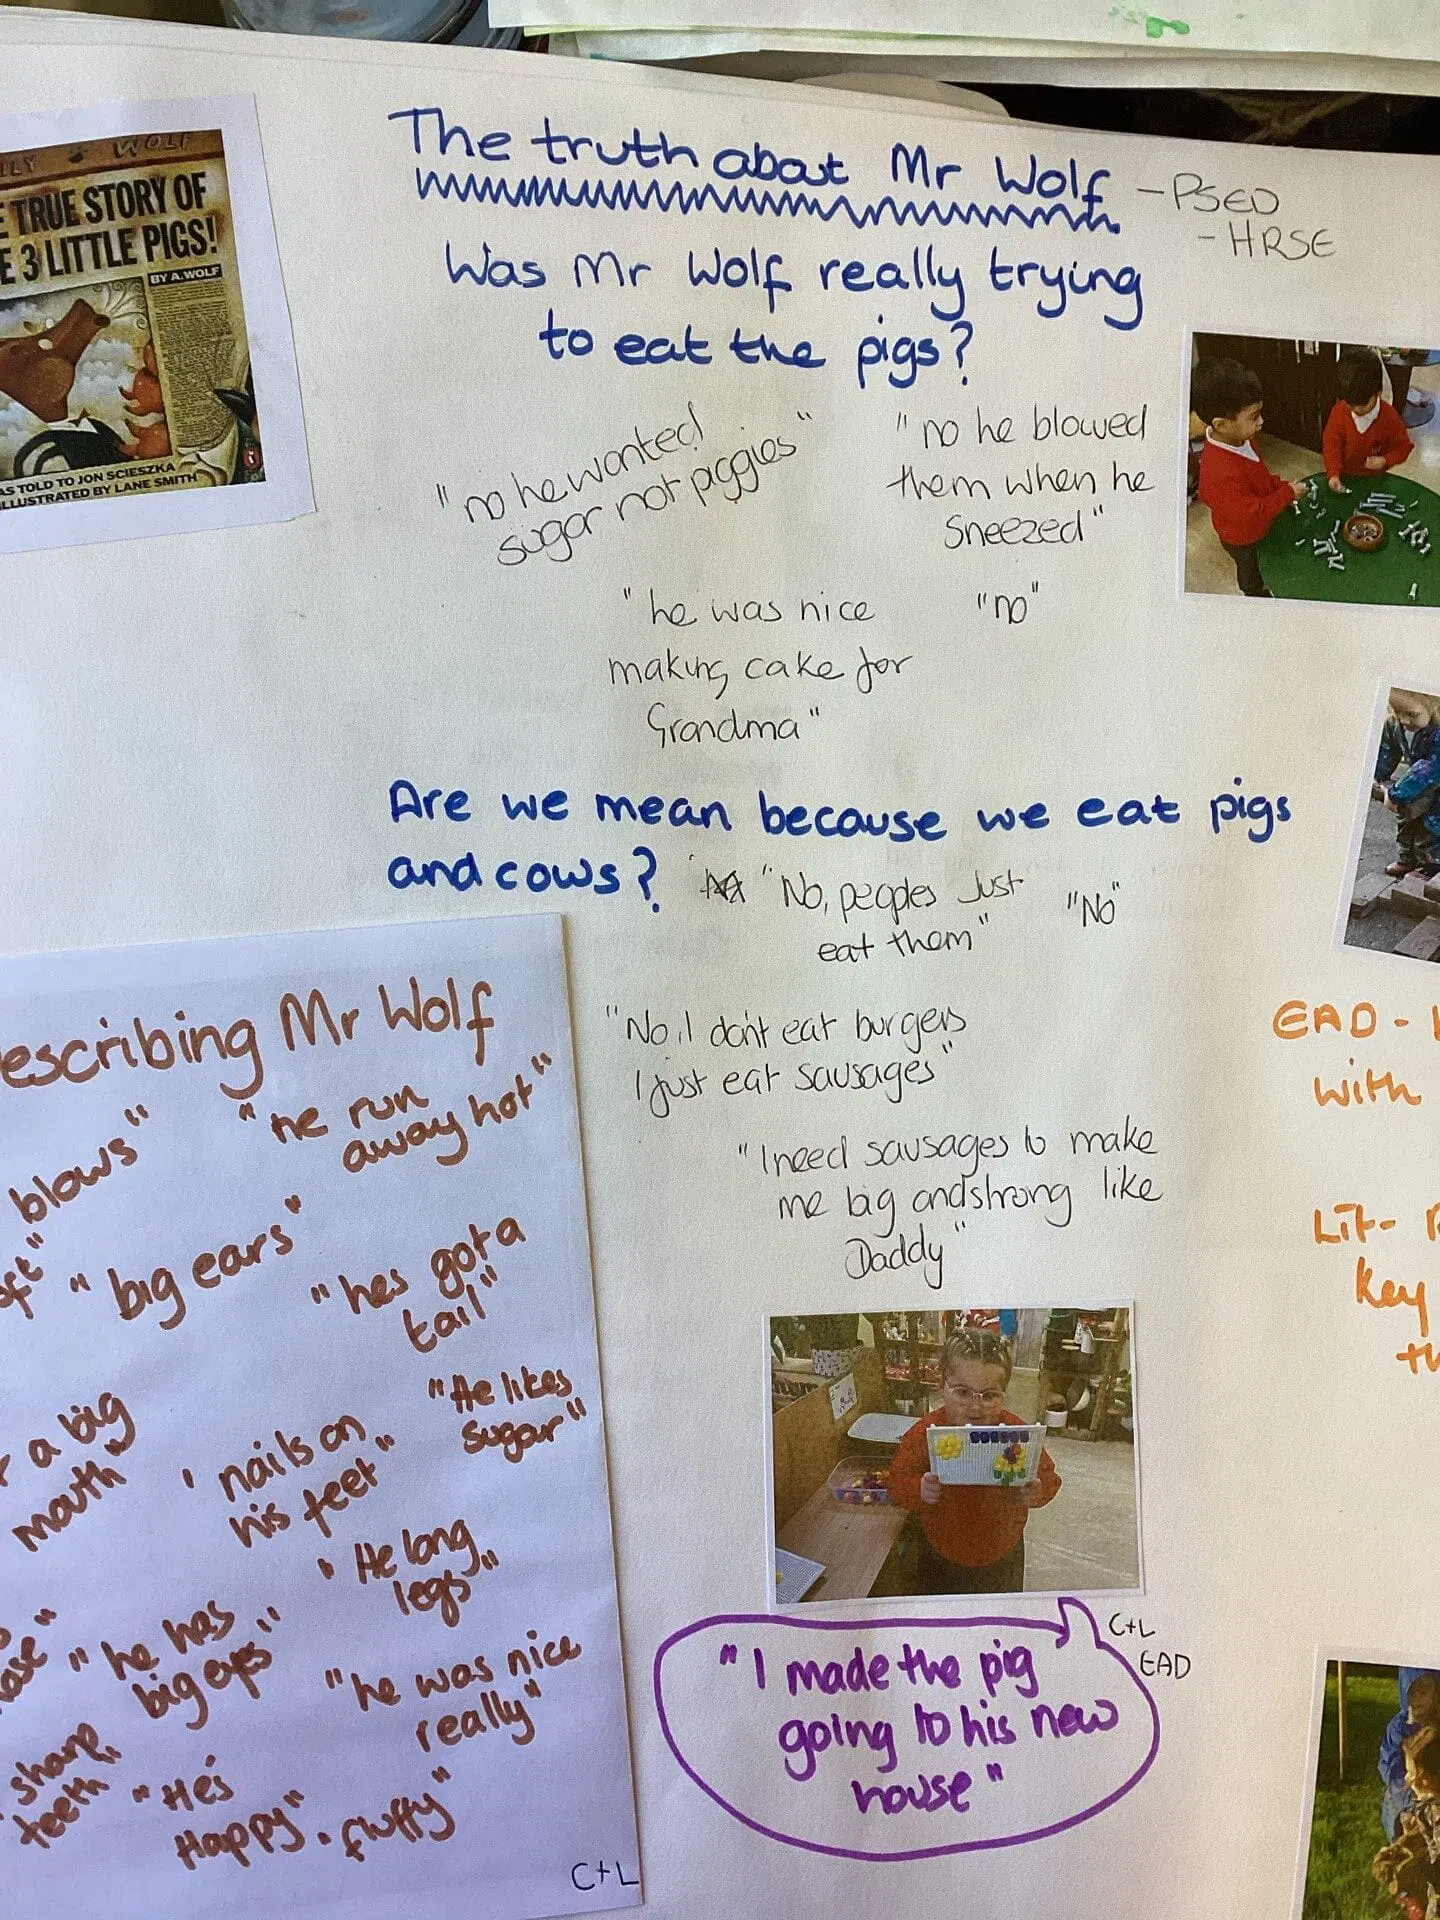 WOLF
TRUE STORY OF
E 3 LITTLE PIGS!
BY A. WOLF
AS TOLD TO JON SCIESZKA
ILLUSTRATED BY LANE SMITH
The truth about Mr Wolf
- PSED
- HRSE
Was Mr Wolf really trying
to eat the pigs?
"no he wanted
sugar not piggies"
"no he blowed
them when he
Sneezed"
"he was nice
making cake for
Grandma"
"no"
Are we mean because we eat pigs
and cows?
"No, peoples Just
eat them"
"No"
"No, I don't eat burgers
I just eat sausages"
"I need sausages to make
me big and strong like
Daddy"
escribing Mr Wolf
blows"
"he run
away hot"
"big ears"
"hes got a
tail"
a big
mouth"
' nails on
his feet"
"He likes
sugar"
"He long
legs"
"he has
big eyes"
"he was nice
really"
sharp
teeth
"He's
Happy".
fluffy"
C+L
C+L
EAD
"I made the pig
going to his new
house"
EAD -
with
Lit-
key